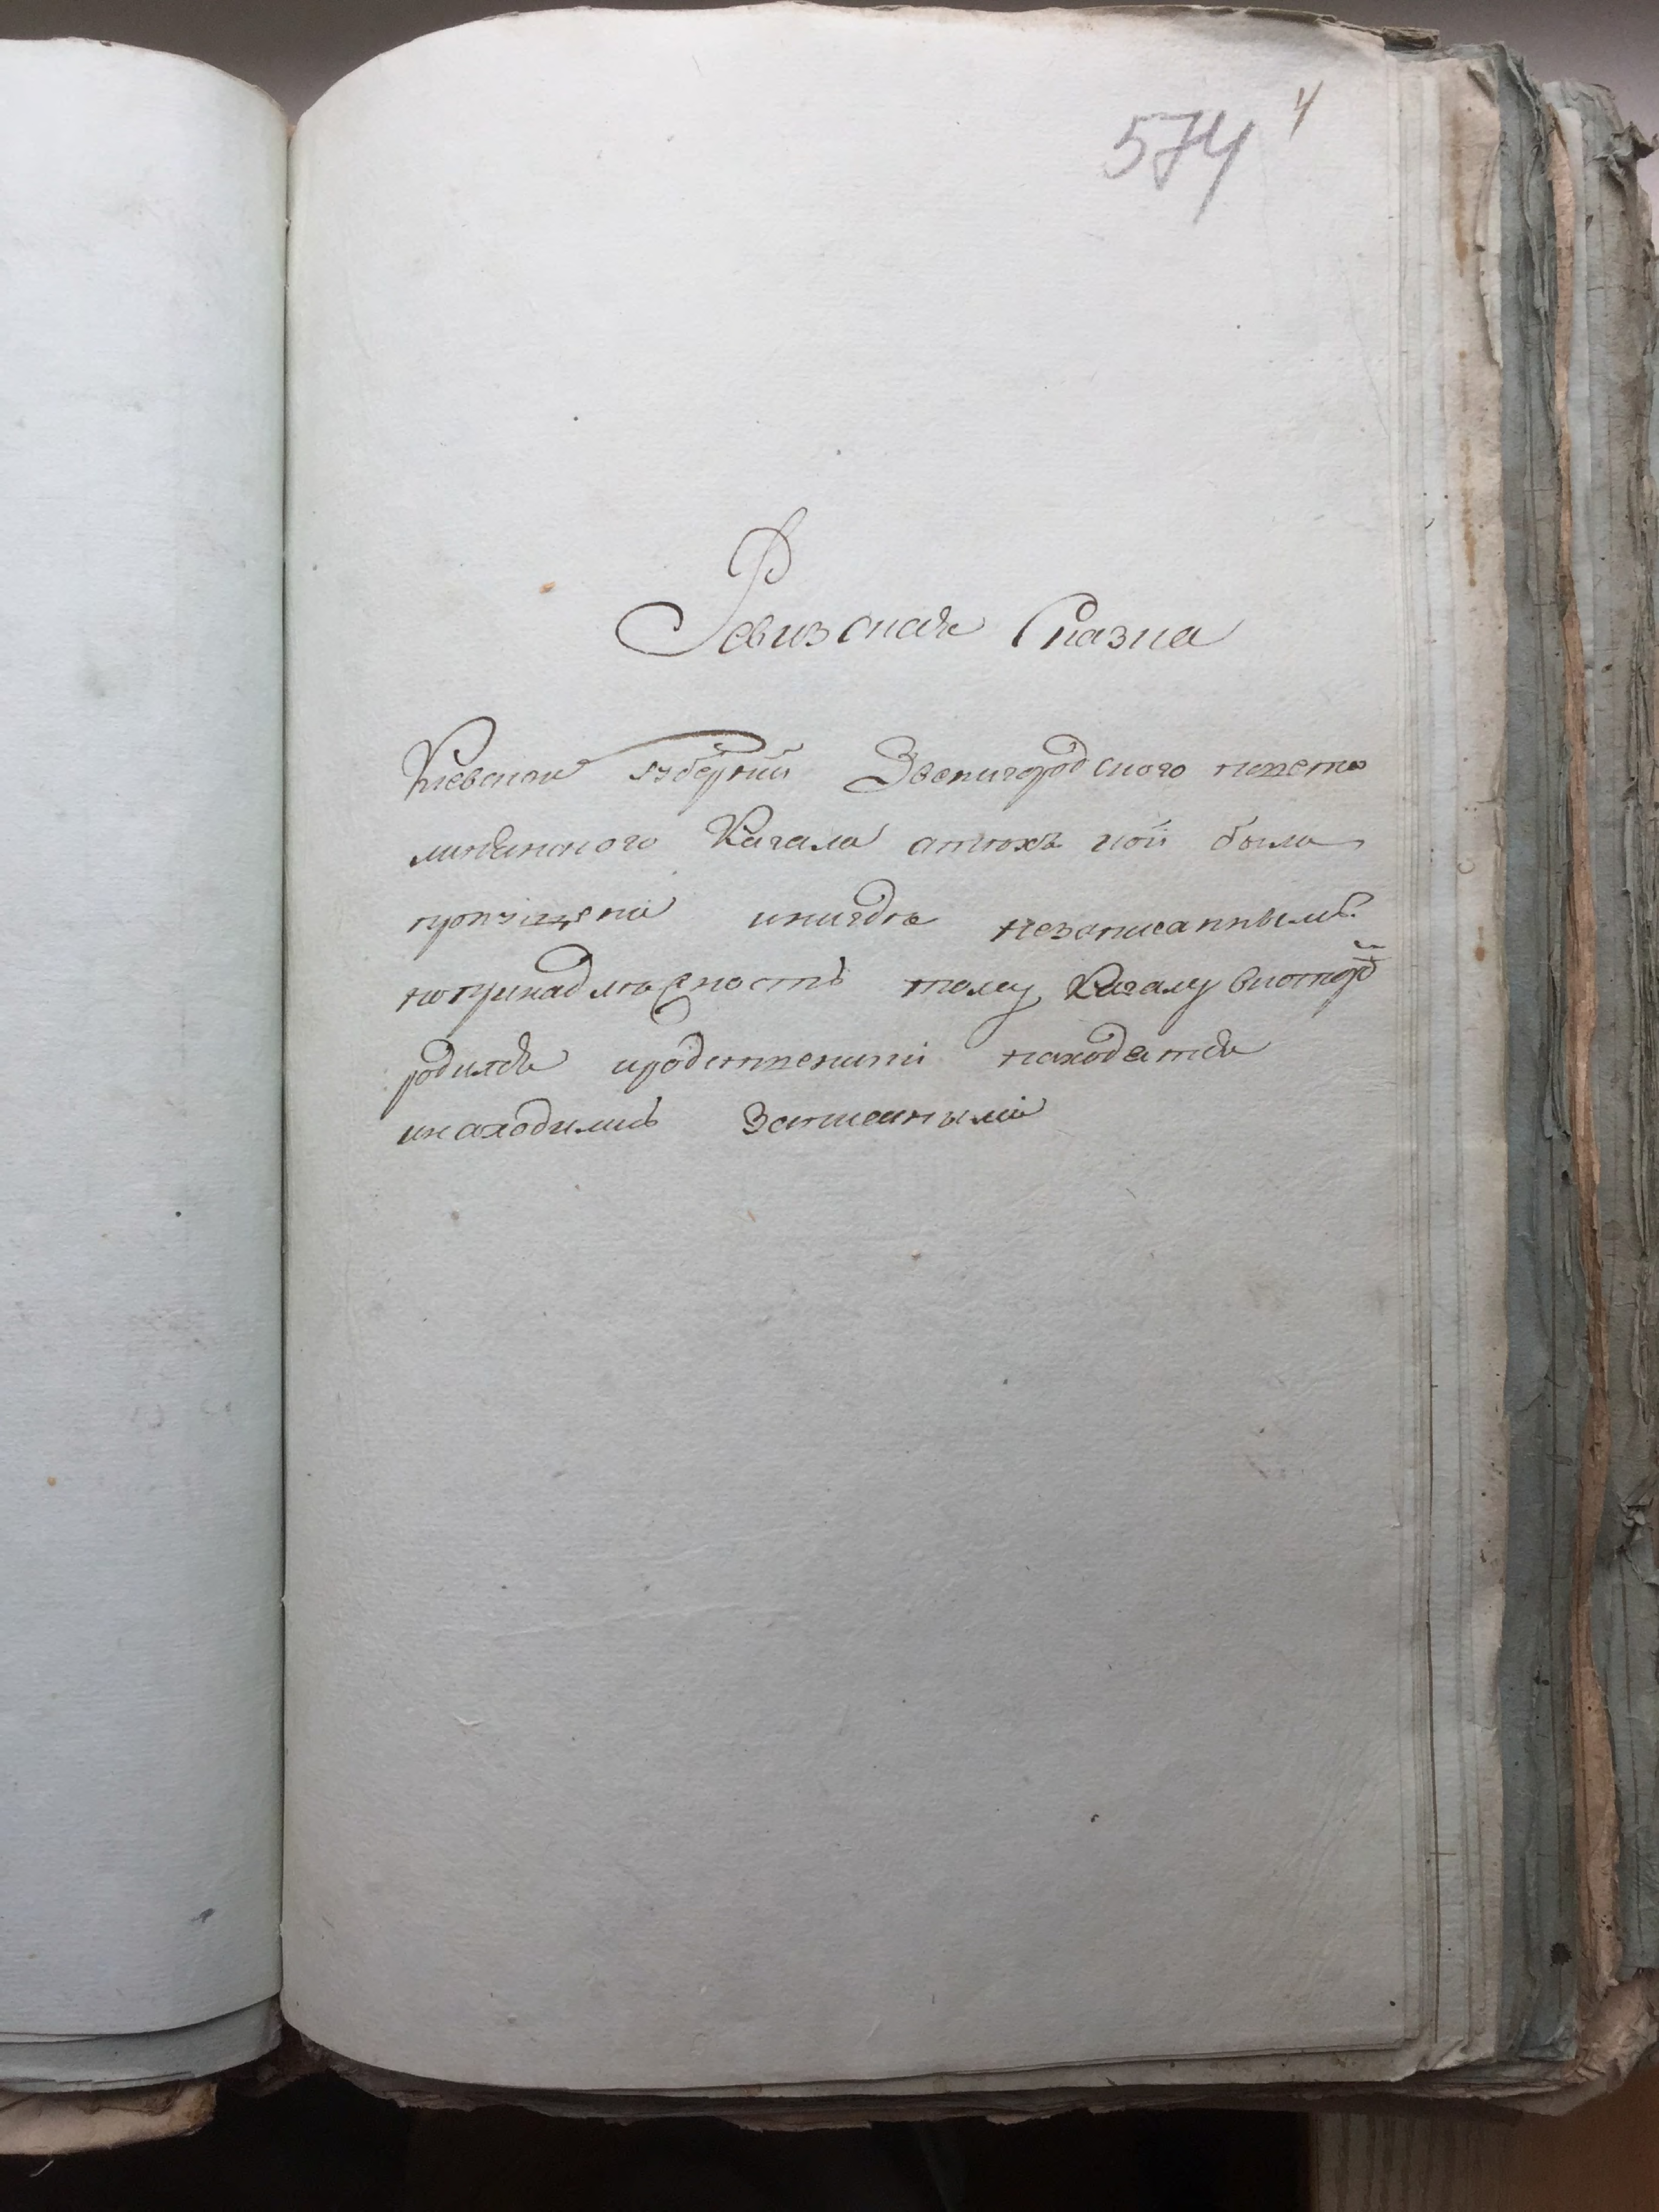 574 4
Ревизская Сказка
Киевской губерний Звенигородского повета
Кагала были
пропущени нигде незаписанным
попринадлежность тому Кагалу вкотор
родился иродственики находятся
инаходились записаными